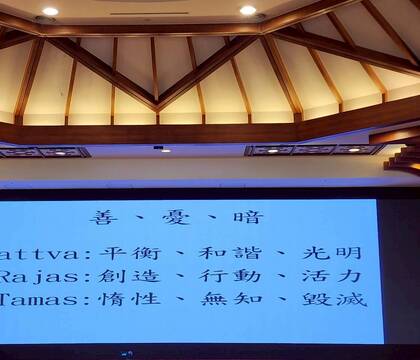 善、憂、暗
attva:平衡、和諧、光明
Rajas:創造、行動、活力
Tamas:惰性、無知、毀滅